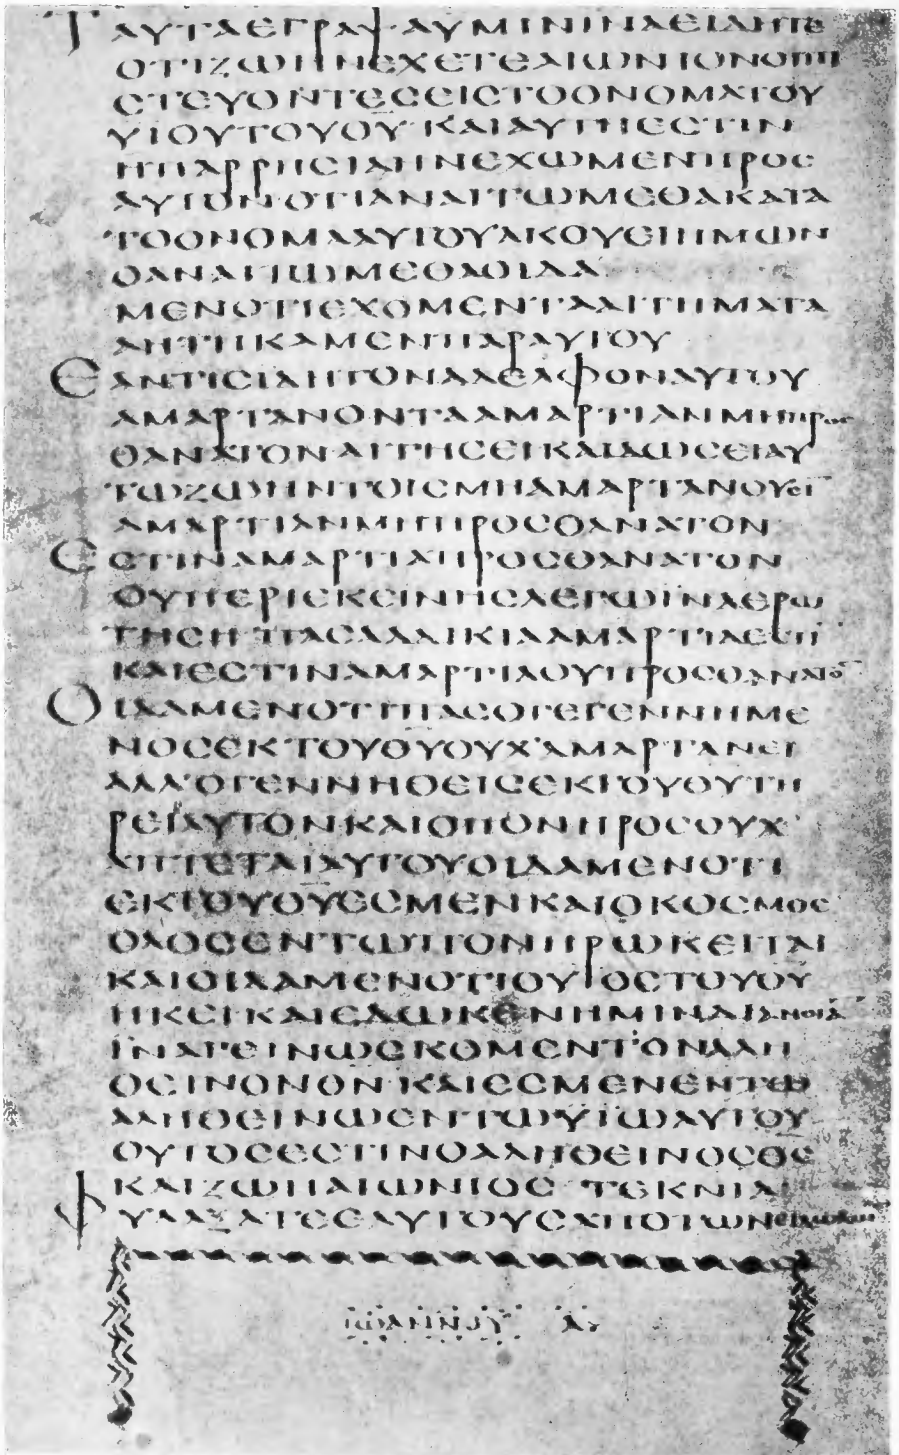 ΤΑΥΤΑΕΓΡΑΨΑΥΜΙΝΙΝΑΕΙΔΗΤΕ
ΟΤΙΖΩΗΝΕΧΕΤΕΑΙΩΝΙΟΝΟΙΠΙ
ϹΤΕΥΟΝΤΕϹΕΙϹΤΟΟΝΟΜΑΤΟΥ
ΥΙΟΥΤΟΥΘΥ· ΚΑΙΑΥΤΗΕϹΤΙΝ
ΗΠΑΡΡΗϹΙΑΗΝΕΧΩΜΕΝΠΡΟϹ
ΑΥΤΟΝ·ΟΤΙΑΝΑΙΤΩΜΕΘΑΚΑΤΑ
ΤΟΟΝΟΜΑΑΥΤΟΥΑΚΟΥΕΙΗΜΩΝ
ΟΑΝΑΙΤΩΜΕΘΑΟΙΔΑ
ΜΕΝΟΤΙΕΧΟΜΕΝΤΑΑΙΤΗΜΑΤΑ
ΑΗΤΗΚΑΜΕΝΠΑΡΑΥΤΟΥ
ΕΑΝΤΙϹΙΔΗΤΟΝΑΔΕΛΦΟΝΑΥΤΟΥ
ΑΜΑΡΤΑΝΟΝΤΑΑΜΑΡΤΙΑΝΜΗΠΡΟϹ
ΘΑΝΑΤΟΝΑΙΤΗϹΕΙΚΑΙΔΩϹΕΙΑΥ
ΤΩΖΩΗΝΤΟΙϹΜΗΑΜΑΡΤΑΝΟΥϹΙ
ΑΜΑΡΤΙΑΝΜΗΠΡΟϹΘΑΝΑΤΟΝ
ΕϹΤΙΝΑΜΑΡΤΙΑΠΡΟϹΘΑΝΑΤΟΝ
ΟΥΠΕΡΙΕΚΕΙΝΗϹΛΕΓΩΙΝΑΕΡΩ
ΤΗϹΗ· ΠΑϹΑΑΔΙΚΙΑΑΜΑΡΤΙΑΕϹΤΙ
ΚΑΙΕϹΤΙΝΑΜΑΡΤΙΑΟΥΠΡΟϹΘΑΝΑΤΟ
ΟΙΔΑΜΕΝΟΤΙΠΑϹΟΓΕΓΕΝΝΗΜΕ
ΝΟϹΕΚΤΟΥΘΥΟΥΧΑΜΑΡΤΑΝΕΙ
ΑΛΛΟΓΕΝΝΗΘΕΙϹΕΚΤΟΥΘΥΤΗ
ΡΕΙΑΥΤΟΝΚΑΙΟΠΟΝΗΡΟϹΟΥΧ
ΑΠΤΕΤΑΙΑΥΤΟΥΟΙΔΑΜΕΝΟΤΙ
ΕΚΤΟΥΘΥΕϹΜΕΝΚΑΙΟΚΟϹΜΟϹ
ΟΛΟϹΕΝΤΩΠΟΝΗΡΩΚΕΙΤΑΙ
ΚΑΙΟΙΔΑΜΕΝΟΤΙΟΥΙΟϹΤΟΥΘΥ
ΗΚΕΙΚΑΙΕΔΩΚΕΝΗΜΙΝΔΙΑΝΟΙΑ
ΙΝΑΓΕΙΝΩϹΚΟΜΕΝΤΟΝΑΛΗ
ΘΕΙΝΟΝΘΝ·ΚΑΙΕϹΜΕΝΕΝΤΩ
ΑΛΗΘΕΙΝΩΕΝΤΩΥΙΩΑΥΤΟΥ
ΟΥΤΟϹΕϹΤΙΝΟΑΛΗΘΕΙΝΟϹΘϹ
ΚΑΙΖΩΗΑΙΩΝΙΟϹ· ΤΕΚΝΙΑ
ΦΥΛΑΞΑΤΕΕΑΥΤΟΥϹΑΠΟΤΩΝΕΙΔΩΛΩΝ
ΙΩΑΝΝΟΥ Α